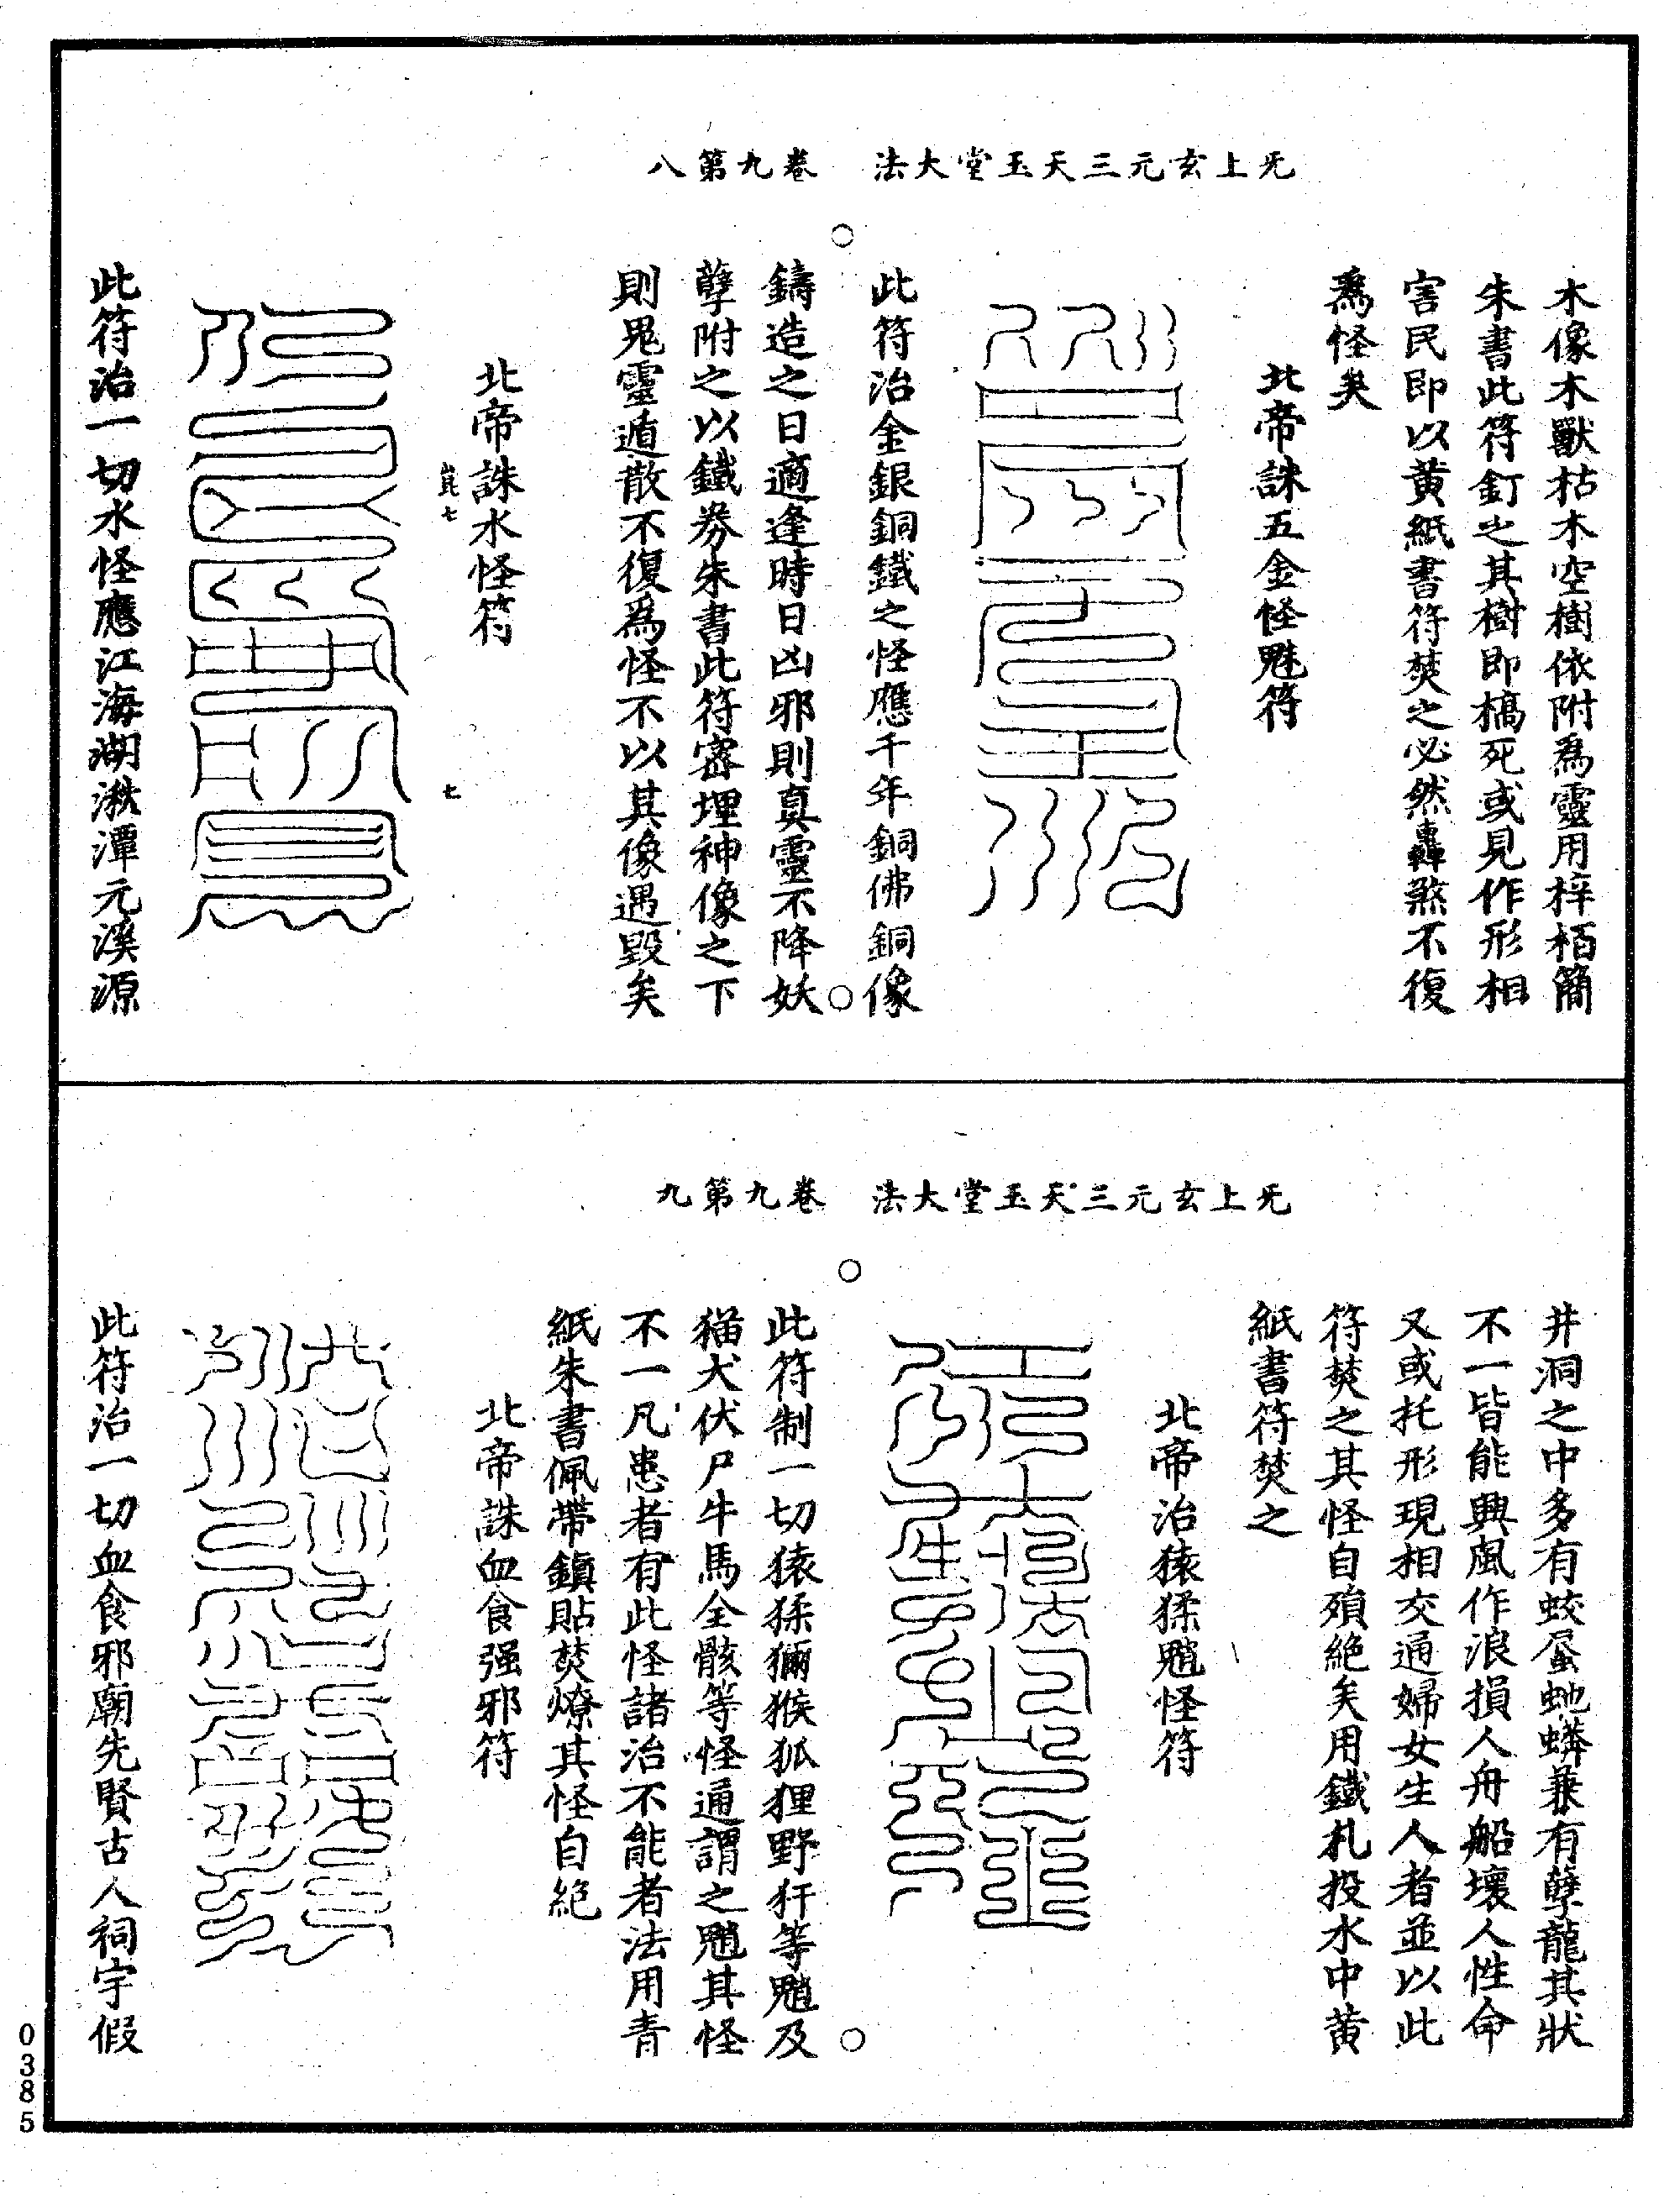 无上玄元三天玉堂大法　卷九第八
木像木獸枯木空樹依附爲靈用梓栢簡
朱書此符釘之其樹即槁死或見作形相
害民即以黄紙書符焚之必然轟煞不復
爲怪矣
北帝誅五金怪魅符
此符治金銀銅鐵之怪應千年銅佛銅像
鑄造之日適逢時日凶邪則真靈不降妖
孽附之以鐵券朱書此符密埋神像之下
則鬼靈遁散不復爲怪不以其像遇毀矣
北帝誅水怪符
七
七
此符治一切水怪應江海湖湫潭元溪源
无上玄元三天玉堂大法　卷九第九
井洞之中多有蛟蜃虵蟒兼有孽龍其狀
不一皆能興風作浪損人舟船壞人性命
又或托形現相交通婦女生人者並以此
符焚之其怪自殞絶矣用鐵札投水中黄
紙書符焚之
北帝治猿猱魈怪符
此符制一切猿猱獼猴狐狸野犴等魈及
猫犬伏尸牛馬全骸等怪通謂之魈其怪
不一凡患者有此怪諸治不能者法用青
紙朱書佩帶鎮貼焚燎其怪自絶
北帝誅血食强邪符
此符治一切血食邪廟先賢古人祠宇假
0385